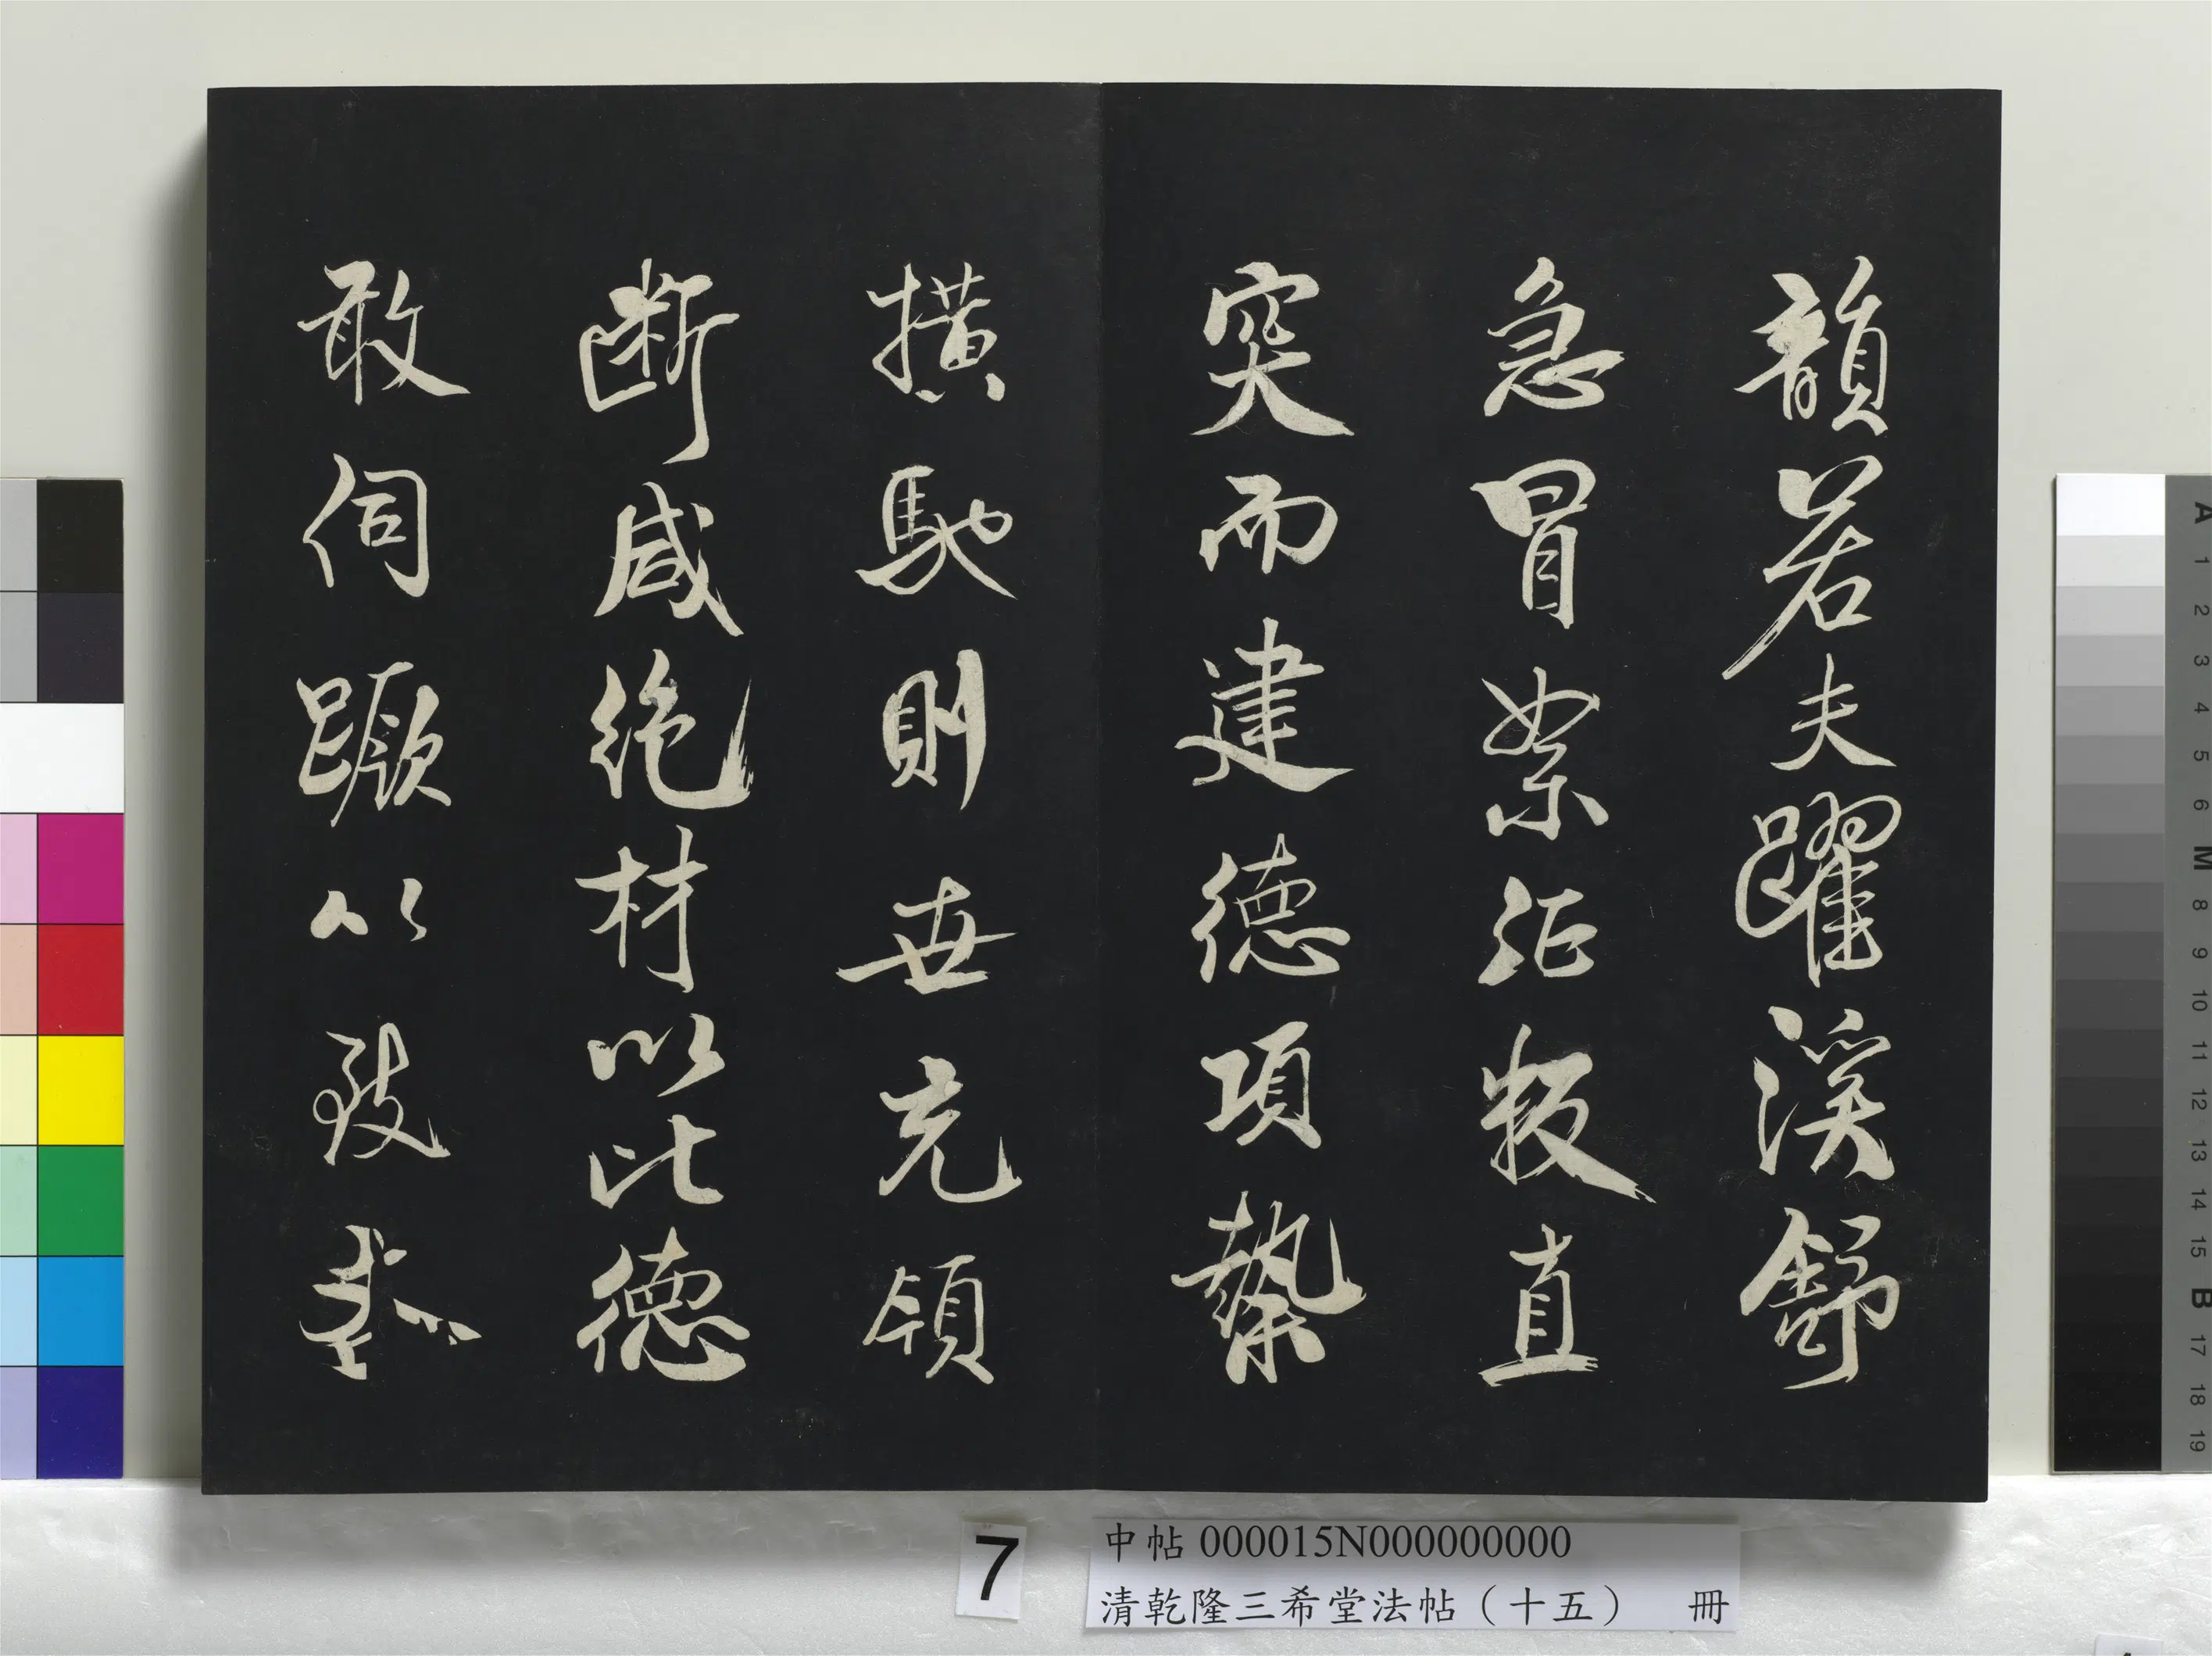 韻若夫躍溪舒
急冒絮征叛直
突而建德項縶
橫馳則世充領
斷咸絕材以比德
敢伺蹶以致
7
中帖 000015N000000000
清乾隆三希堂法帖（十五） 冊
A 1 2 3 4 5 6 M 8 9 10 11 12 13 14 15 B 17 18 19